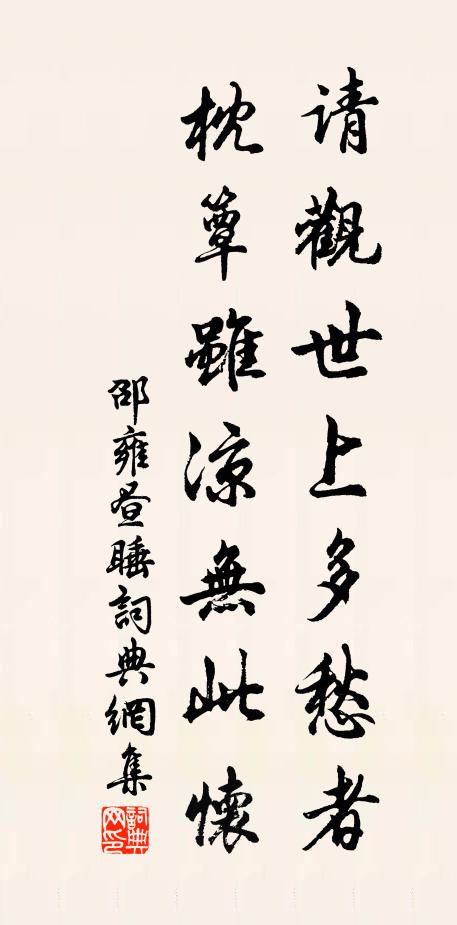 请觀世上多愁者
枕簟雖凉無此懷
邵雍昼睡詞典網集
詞典網印